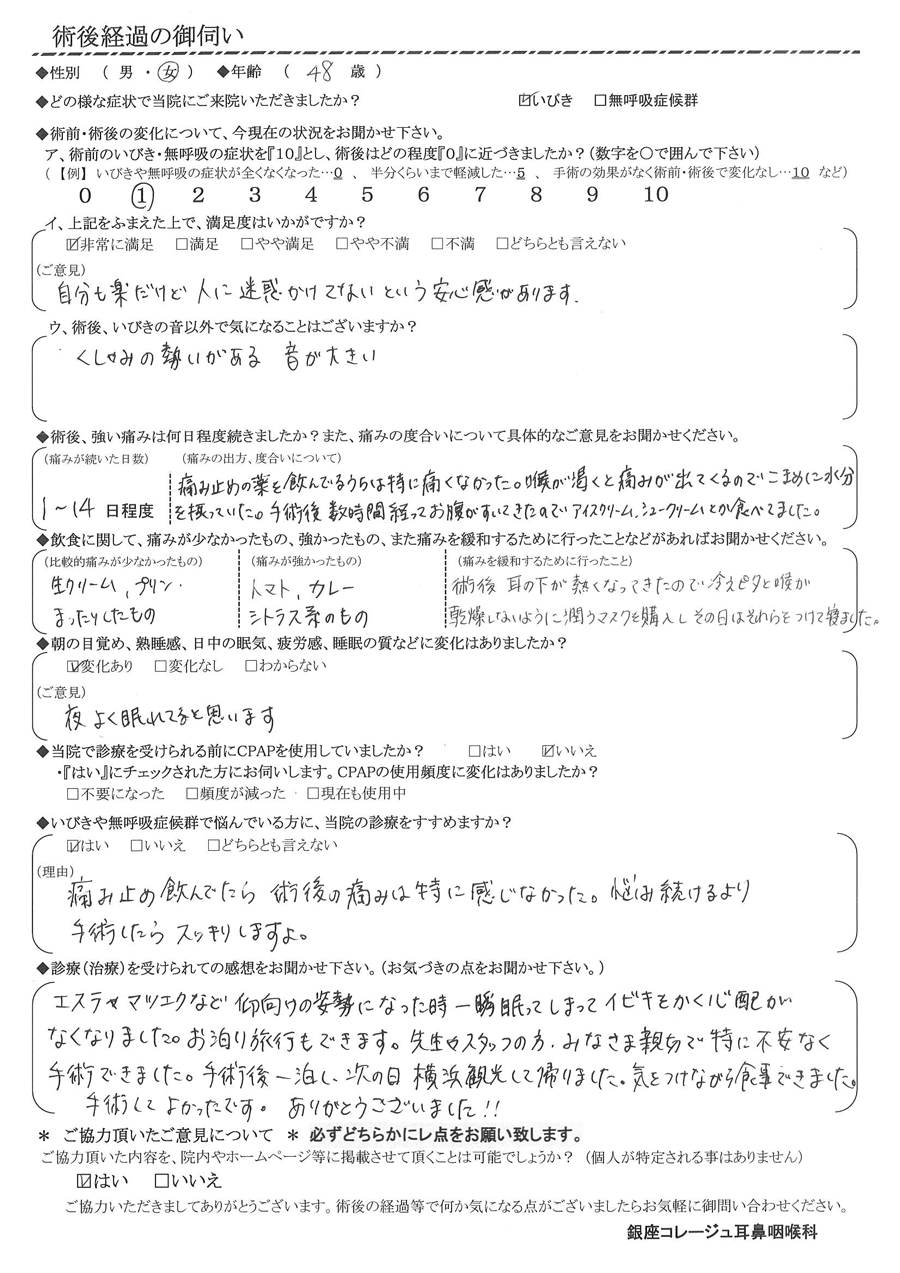 術後経過の御伺い
◆性別 （ 男 ・ 女 ） ◆年齢 （ 48 歳 ）
◆どの様な症状で当院にご来院いただきましたか？ ☑いびき □無呼吸症候群
◆術前・術後の変化について、今現在の状況をお聞かせ下さい。
ア、術前のいびき・無呼吸の症状を『10』とし、術後はどの程度『0』に近づきましたか？（数字を〇で囲んで下さい）
（ 【例】 いびきや無呼吸の症状が全くなくなった…0 、 半分くらいまで軽減した…5 、 手術の効果がなく術前・術後で変化なし…10 など）
0 ① 2 3 4 5 6 7 8 9 10
イ、上記をふまえた上で、満足度はいかがですか？
☑非常に満足 □満足 □やや満足 □やや不満 □不満 □どちらとも言えない
（ご意見）
自分も楽だけど 人に迷惑かけてないという安心感があります.
ウ、術後、いびきの音以外で気になることはございますか？
くしゃみの勢いがある 音が大きい
◆術後、強い痛みは何日程度続きましたか？また、痛みの度合いについて具体的なご意見をお聞かせください。
（痛みが続いた日数） （痛みの出方、度合いについて）
痛み止めの薬を飲んでるうちは特に痛くなかった。喉が渇くと痛みが出てくるのでこまめに水分
1～14 日程度 を摂っていた。手術後数時間経ってお腹がすいてきたのでアイスクリーム、シュークリームとか食べてました。
◆飲食に関して、痛みが少なかったもの、強かったもの、また痛みを緩和するために行ったことなどがあればお聞かせください。
（比較的痛みが少なかったもの） （痛みが強かったもの） （痛みを緩和するために行ったこと）
生クリーム、プリン・ トマト、カレー 術後 耳の下が熱くなってきたので冷えピタと喉が
まったりしたもの シトラス系のもの 乾燥しないように潤うマスクを購入しその日はそれらをつけて寝ました。
◆朝の目覚め、熟睡感、日中の眠気、疲労感、睡眠の質などに変化はありましたか？
☑変化あり □変化なし □わからない
（ご意見）
夜よく眠れてると思います
◆当院で診療を受けられる前にCPAPを使用していましたか？ □はい ☑いいえ
・『はい』にチェックされた方にお伺いします。CPAPの使用頻度に変化はありましたか？
□不要になった □頻度が減った □現在も使用中
◆いびきや無呼吸症候群で悩んでいる方に、当院の診療をすすめますか？
☑はい □いいえ □どちらとも言えない
（理由）
痛み止め飲んでたら 術後の痛みは特に感じなかった。悩み続けるより
手術したら スッキリしますよ。
◆診療（治療）を受けられての感想をお聞かせ下さい。（お気づきの点をお聞かせ下さい。）
エステやマツエクなど 仰向けの姿勢になった時一瞬眠ってしまってイビキをかく心配が
なくなりました。お泊り旅行もできます。先生やスタッフの方、みなさま親切で特に不安なく
手術できました。手術後一泊し、次の日 横浜観光して帰りました。気をつけながら食事できました。
手術してよかったです。 ありがとうございました!!
＊ ご協力頂いたご意見について ＊ 必ずどちらかにレ点をお願い致します。
ご協力頂いた内容を、院内やホームページ等に掲載させて頂くことは可能でしょうか？ （個人が特定される事はありません）
☑はい □いいえ
ご協力いただきましてありがとうございます。術後の経過等で何か気になる点がございましたらお気軽に御問い合わせください。
銀座コレージュ耳鼻咽喉科